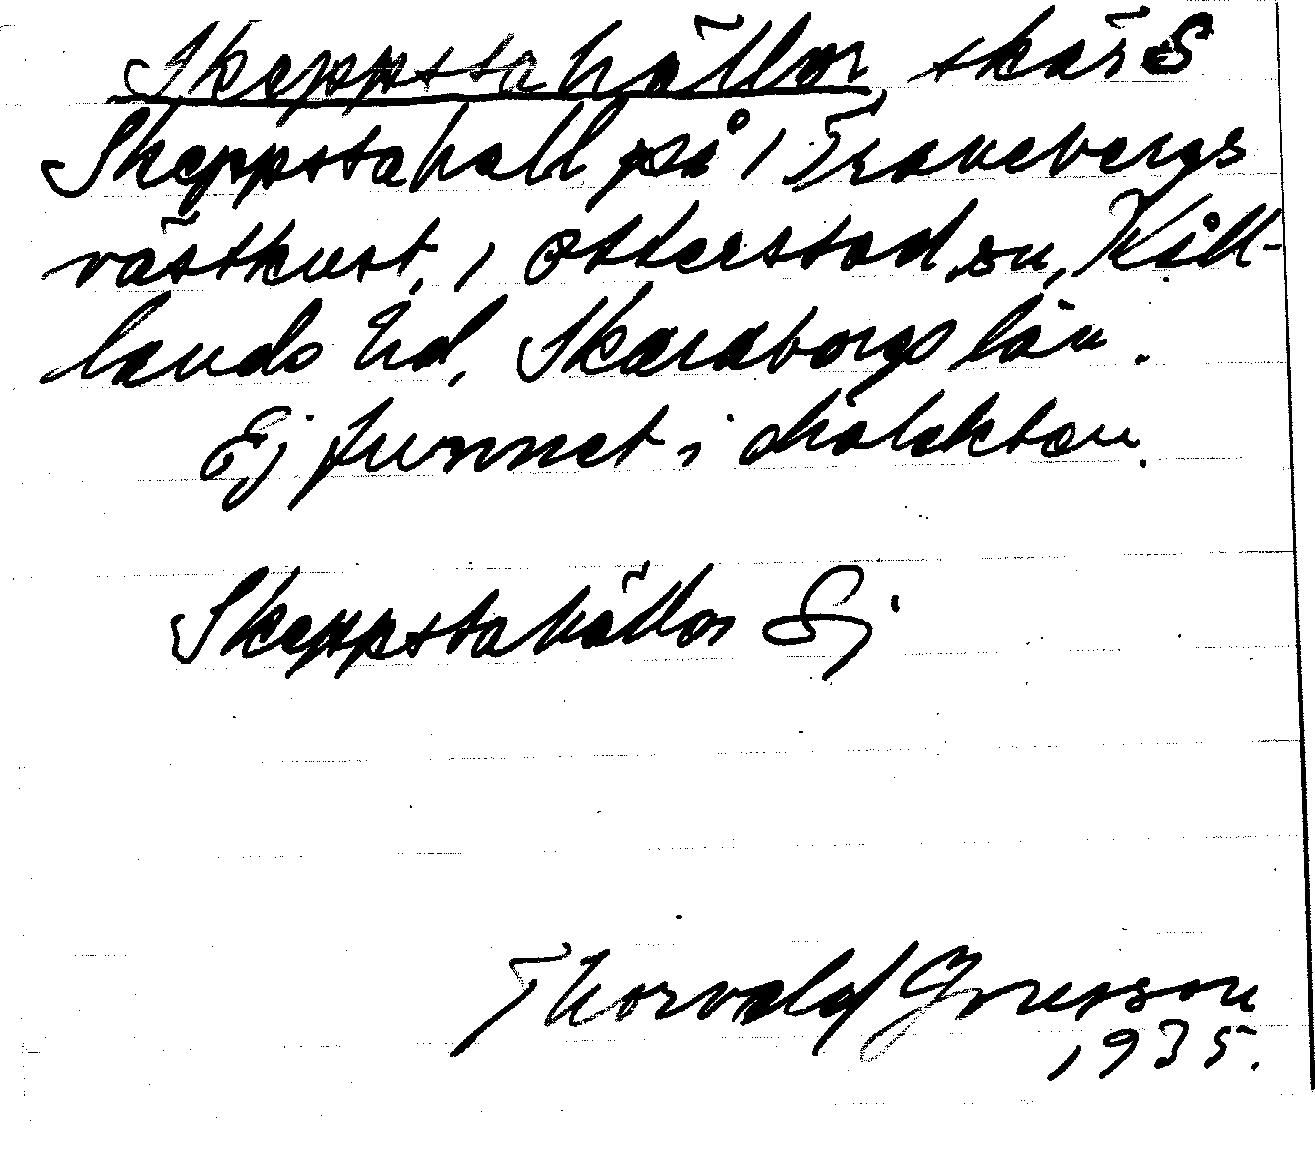 Skeppstahällor, skär S
Skeppstahall på i Tranebergs
västkust, i Otterstad sn, Kåll-
lands hd, Skaraborgs län.
Ej funnet i dialekten.
Skeppstahällor Ej
Thorvald
1935.